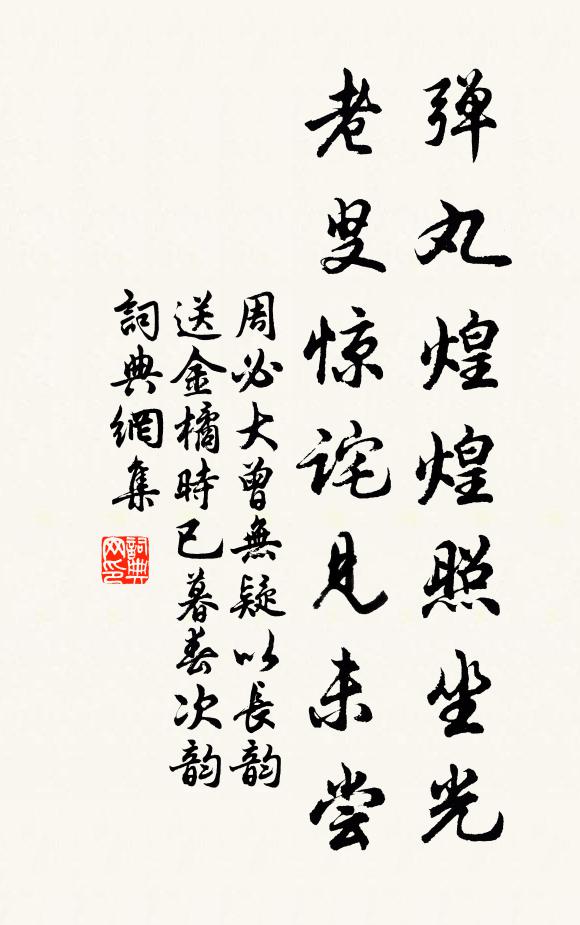 弹丸煌煌照坐光
老叟惊诧见未尝
周必大曾無疑以長韵
送金橘時已暮春次韵
詞典網集
詞典网印